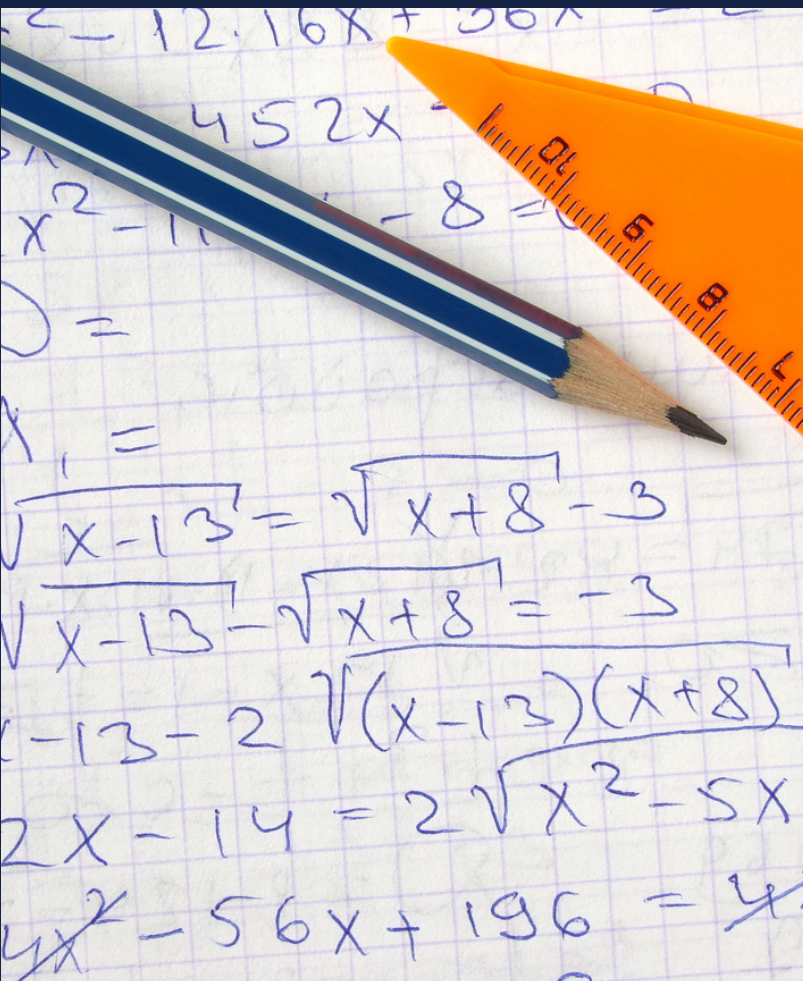 - 12.16x + 36x
452x -
x² - 8 =
=
X₁ =
√x-13 = √x+8 - 3
√x-13 - √x+8 = -3
-13 - 2 √(x-13)(x+8)
2x - 14 = 2√x² - 5x
4x² - 56x + 196 = 4
10
9
8
7